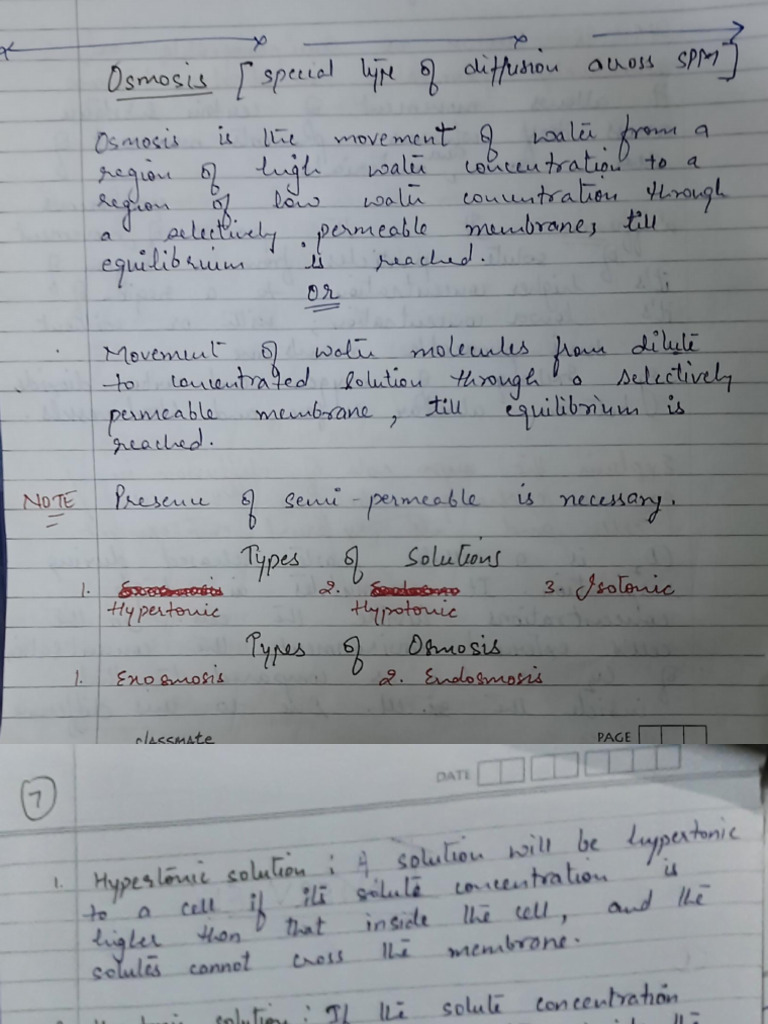 Osmosis [special type of diffusion across SPM]
Osmosis is the movement of water from a
region of high water concentration to a
region of low water concentration through
a selectively permeable membrane, till
equilibrium is reached.
OR
Movement of water molecules from dilute
to concentrated solution through a selectively
permeable membrane, till equilibrium is
reached.
NOTE Presence of semi-permeable is necessary.
Types of Solutions
1. Hypertonic 2. Hypotonic 3. Isotonic
Types of Osmosis
1. Exosmosis 2. Endosmosis
classmate PAGE
DATE
7
1. Hypertonic solution : A solution will be hypertonic
to a cell if its solute concentration is
higher than that inside the cell, and the
solutes cannot cross the membrane.
solution : If the solute concentration